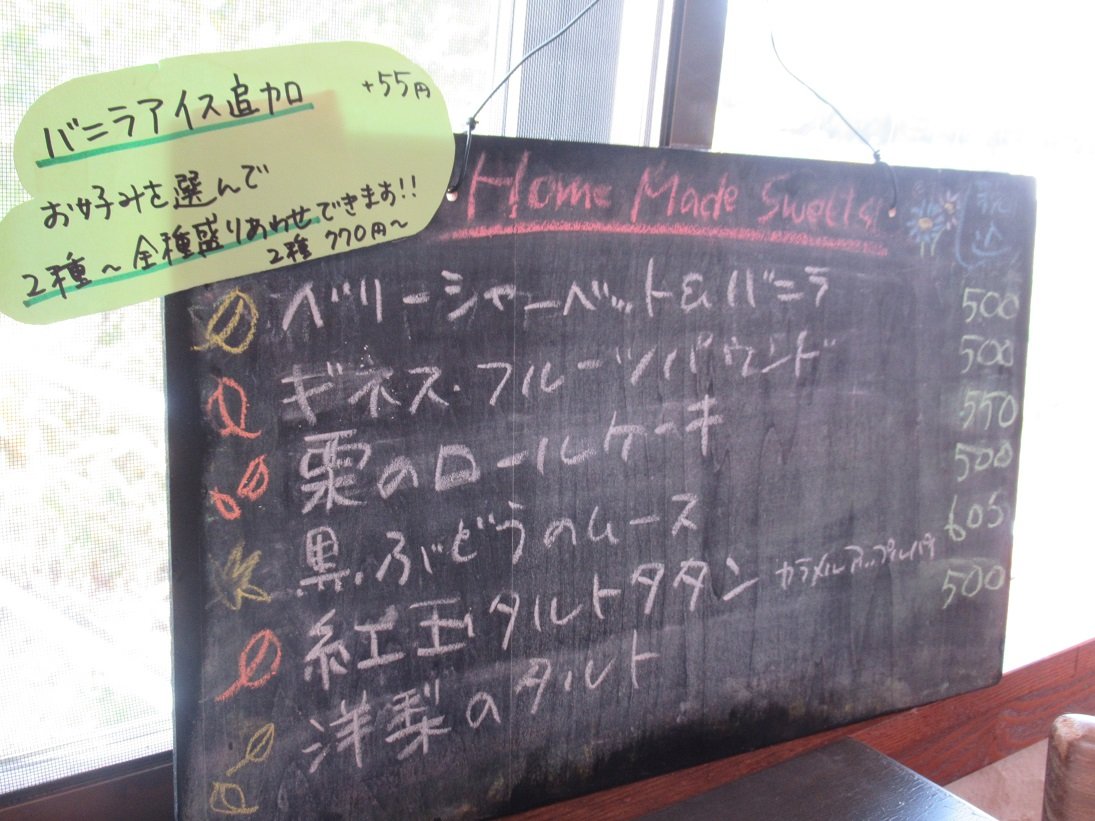 バニラアイス追加 +55円
お好みを選んで
2種～全種盛りあわせできます!!
2種 770円～
Home Made Sweets 税込
ベリーシャーベット&バニラ 500
ギネス・フルーツパウンド 500
栗のロールケーキ 550
黒ぶどうのムース 500
紅玉タルトタタン カラメルアップルパイ 605
洋梨のタルト 500